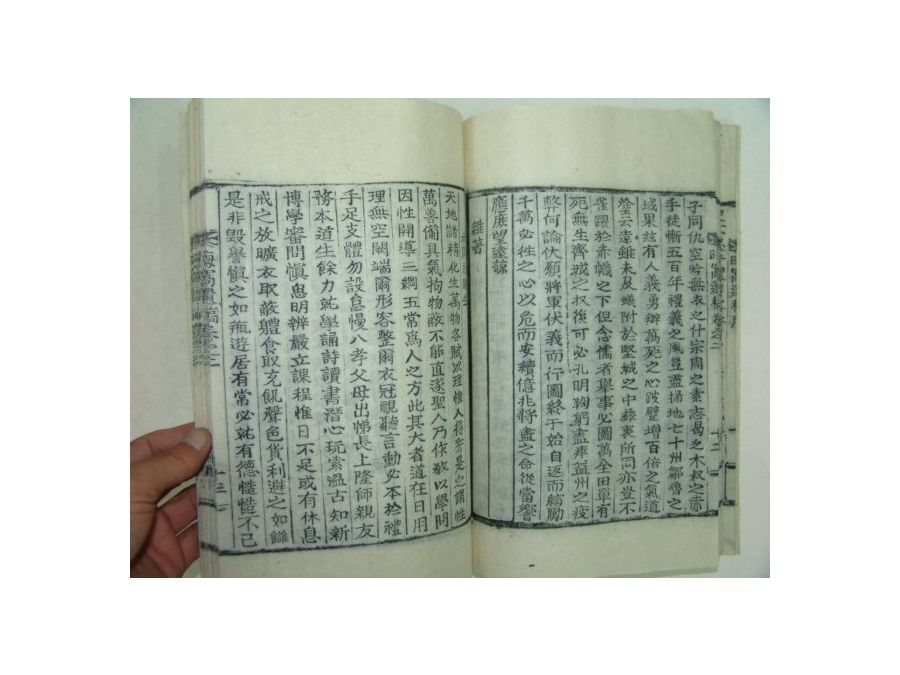 子同仇空吟無衣之什宗周之素志曷之木叔之赤
手徒慚五百年禮義之風豈盡掃地七十州鄒魯之
域果玆有人義勇辦萬死之心跛躄增百倍之氣道
登云遠雖未及蟻附於堅城之中彛衷所同亦豈不
雀躍於赤幟之下但念儒者擧事必圖萬全田單有
死無生齊城之权後可必孔明鞠躬盡瘁益州之疲
弊何論伏願將軍伏義而行圖終于始自返而縮勵
千萬必往之心以危而安續億兆將盡之命從當響
應庶望遠諒
雜著
天地儲精化生萬物各賦以理惟人得秀是之謂性
萬善俻具氣拘物蔽不能直遂聖人乃作敎以學問
因性開導三綱五常爲人之方此其大者道在日用
理無空闕端爾形容整爾衣冠視聽言動必本於禮
手足支體勿設怠慢入孝父母出悌長上隆師親友
務本道生餘力就學誦詩讀書潛心玩索溫古知新
博學審問愼思明辨嚴立課程惟日不足或有休息
戒之放曠衣取蔽軆食取充飢聲色貨利避之如讎
是非毁譽愼之如甁遊居有常必就有德慥慥不已